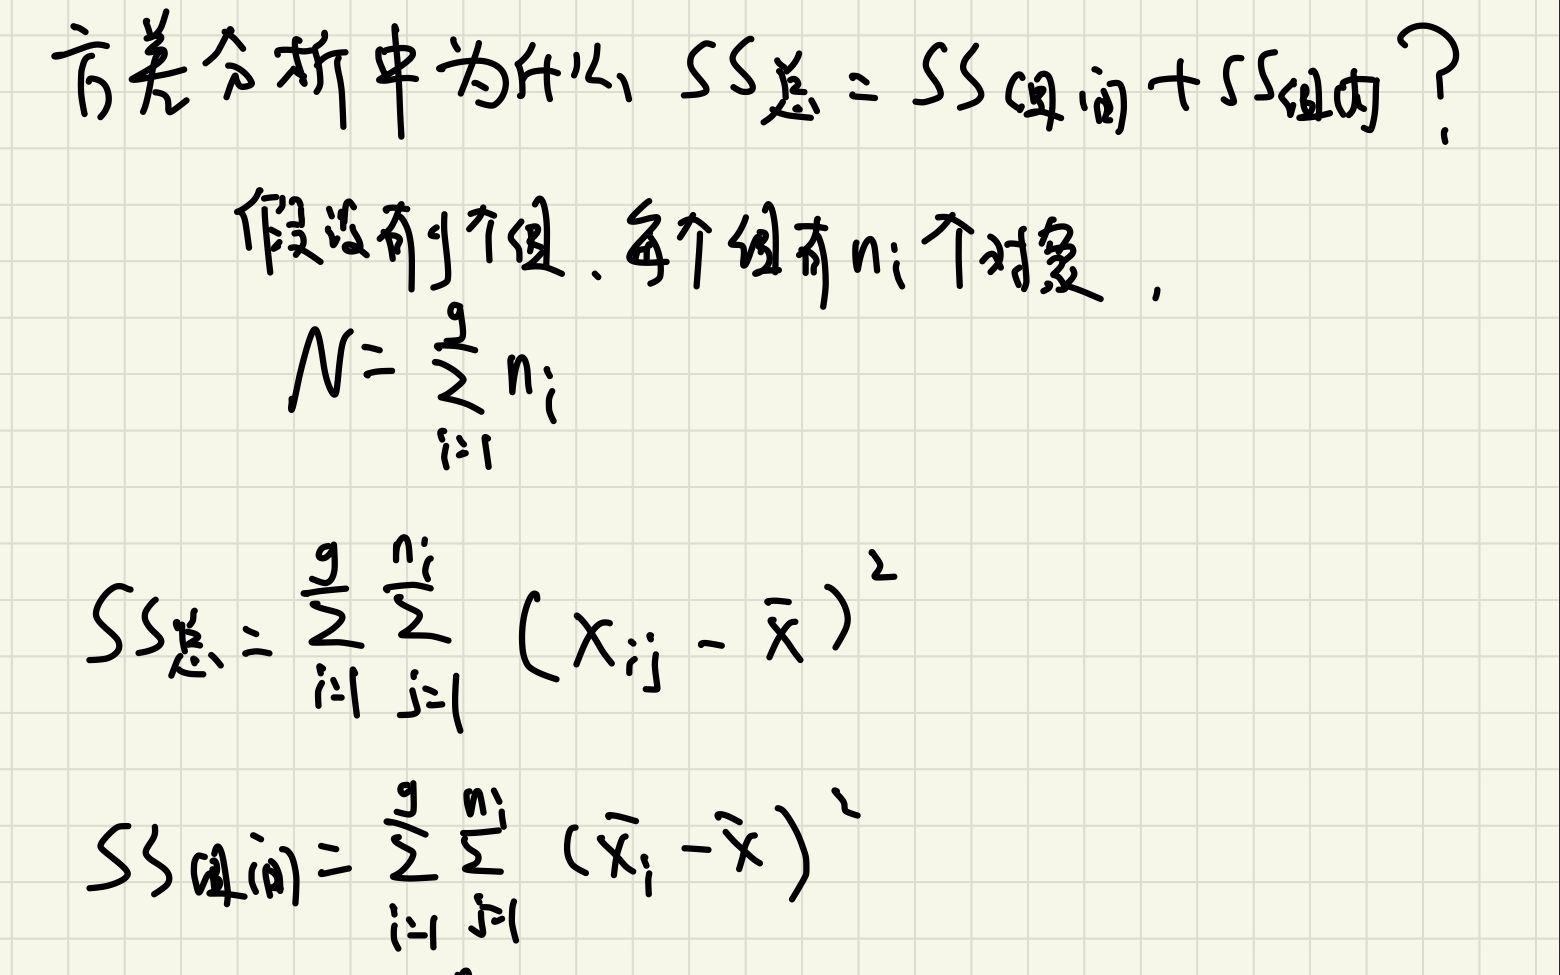 方差分析中为什么 SS总 = SS组间 + SS组内?
假设有g个组、每个组有 nᵢ 个对象,
N = Σ_{i=1}^{g} nᵢ
SS总 = Σ_{i=1}^{g} Σ_{j=1}^{nᵢ} (xᵢⱼ - x̄)²
SS组间 = Σ_{i=1}^{g} Σ_{j=1}^{nᵢ} (x̄ᵢ - x̄)²